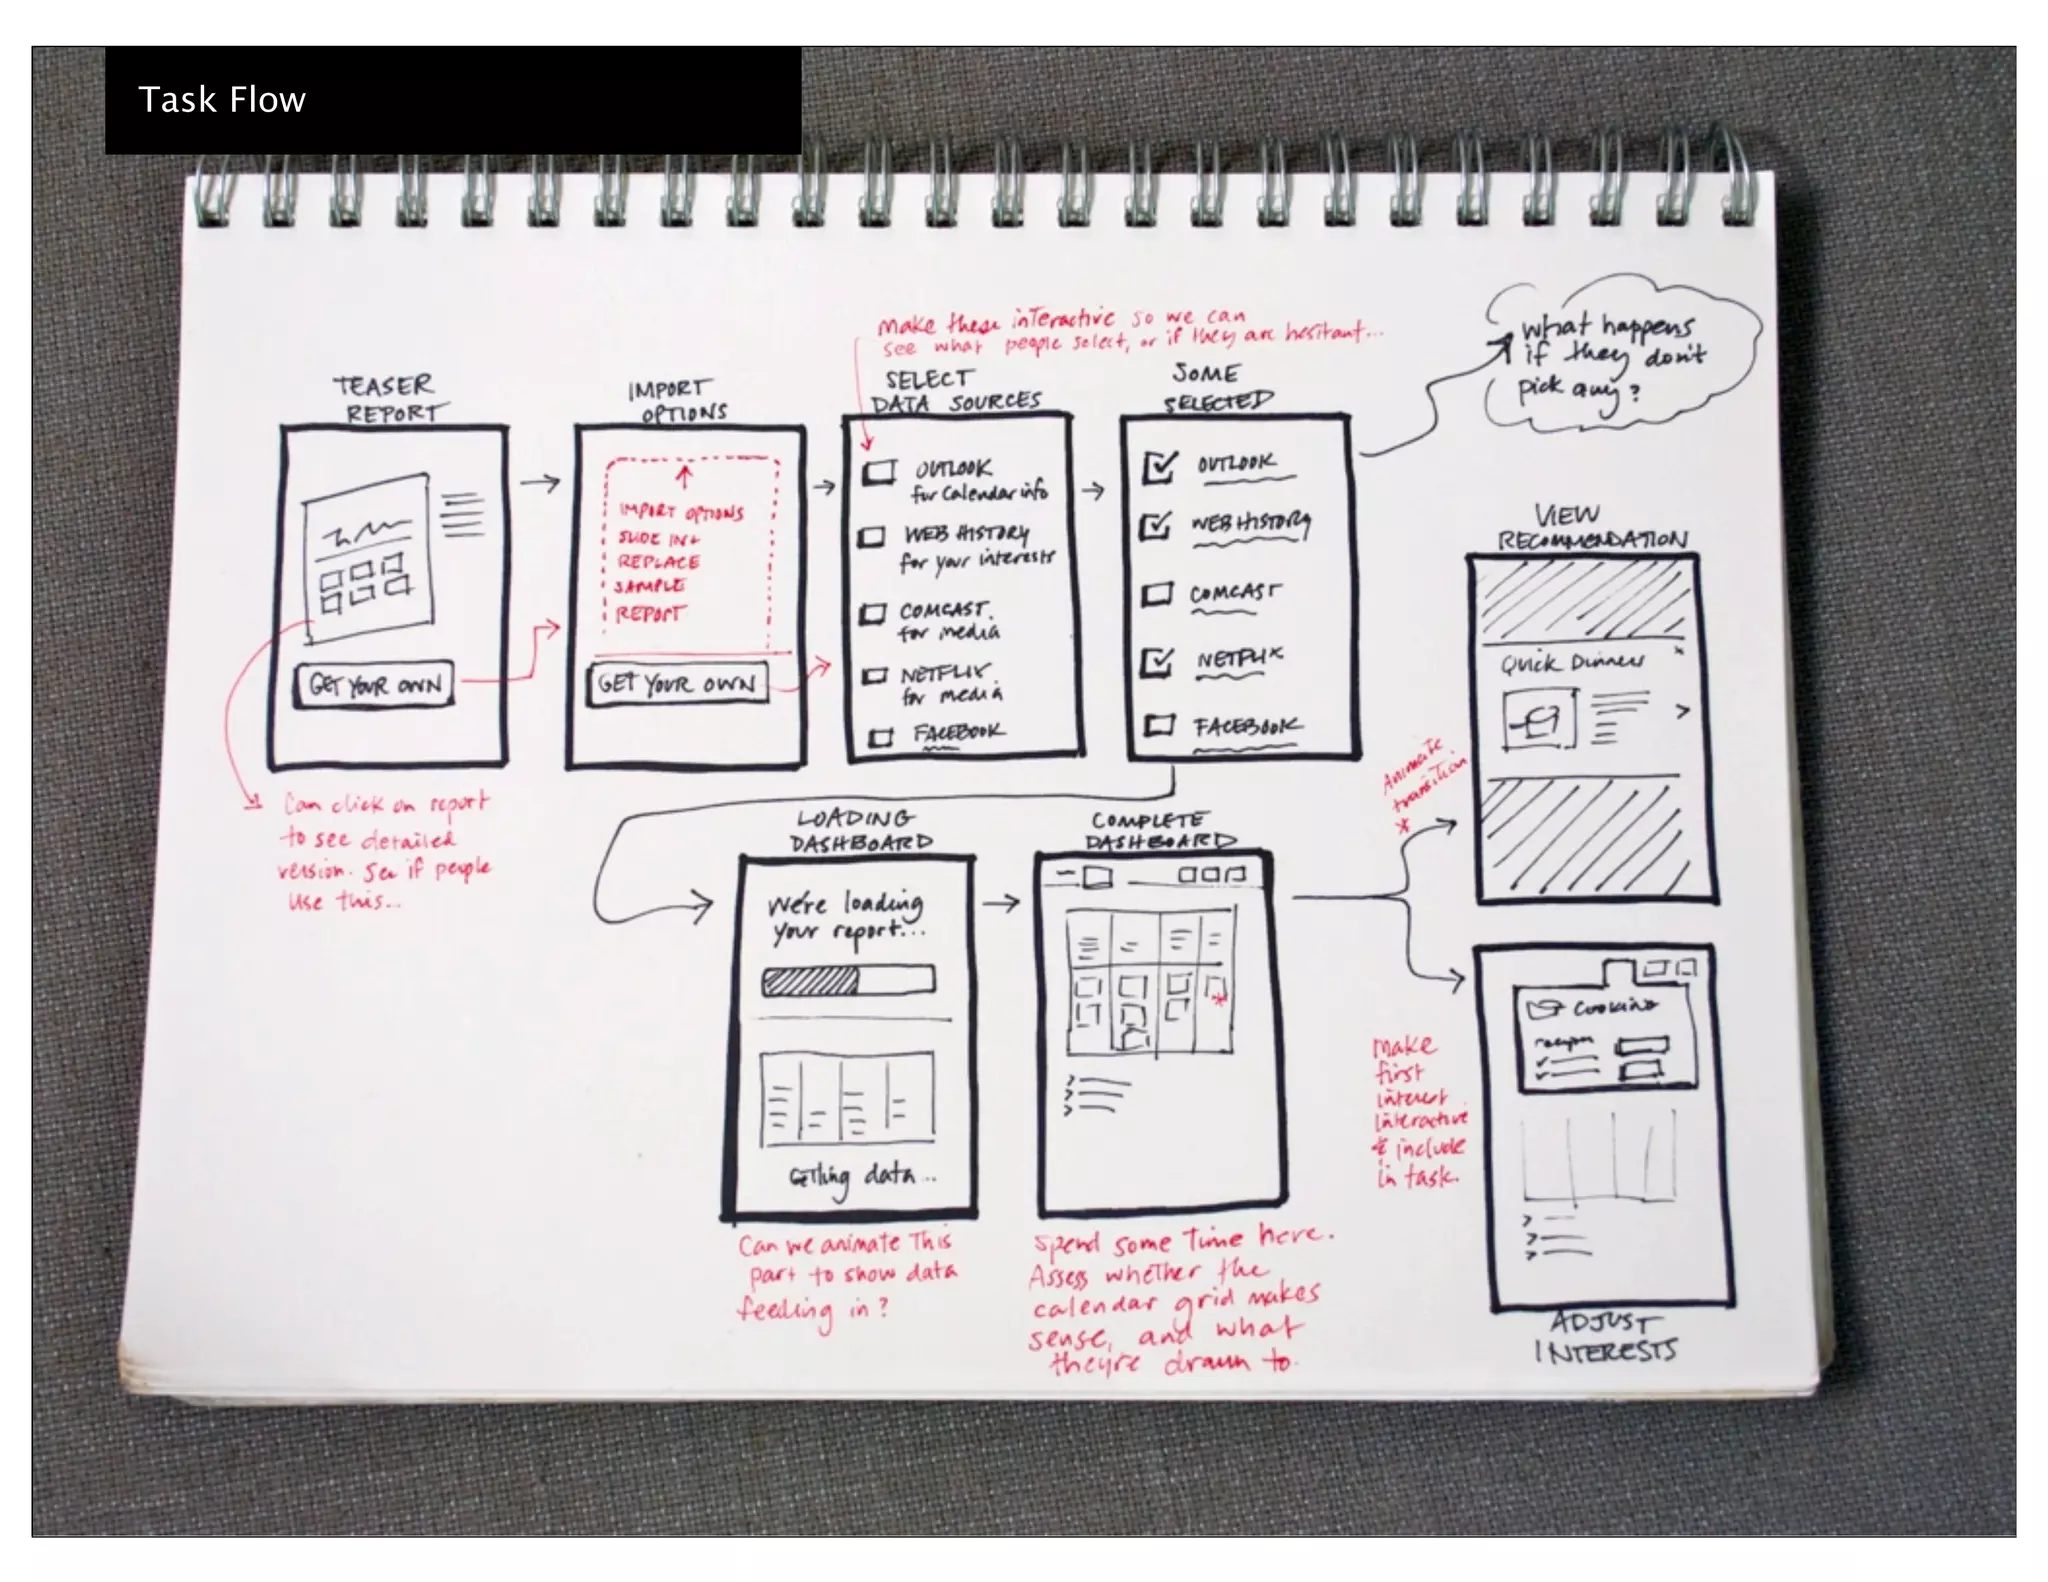 Task Flow
make these interactive so we can
see what people select, or if they are hesitant...
What happens
if they don't
pick any?
TEASER
REPORT
GET YOUR OWN
Can click on report
to see detailed
version. See if people
use this...
IMPORT
OPTIONS
IMPORT OPTIONS
SLIDE IN +
REPLACE
SAMPLE
REPORT
GET YOUR OWN
SELECT
DATA SOURCES
OUTLOOK
for calendar info
WEB HISTORY
for your interests
COMCAST.
for media
NETFLIX.
for media
FACEBOOK
SOME
SELECTED
OUTLOOK
WEB HISTORY
COMCAST
NETFLIX
FACEBOOK
LOADING
DASHBOARD
We're loading
your report...
Getting data...
Can we animate this
part to show data
feeding in?
COMPLETE
DASHBOARD
Spend some time here.
Assess whether the
calendar grid makes
sense, and what
they're drawn to.
Animate
transition
*
VIEW
RECOMMENDATION
Quick Dinner
Make
first
interest
interactive
& include
in task.
Cooking
recipes
ADJUST
INTERESTS